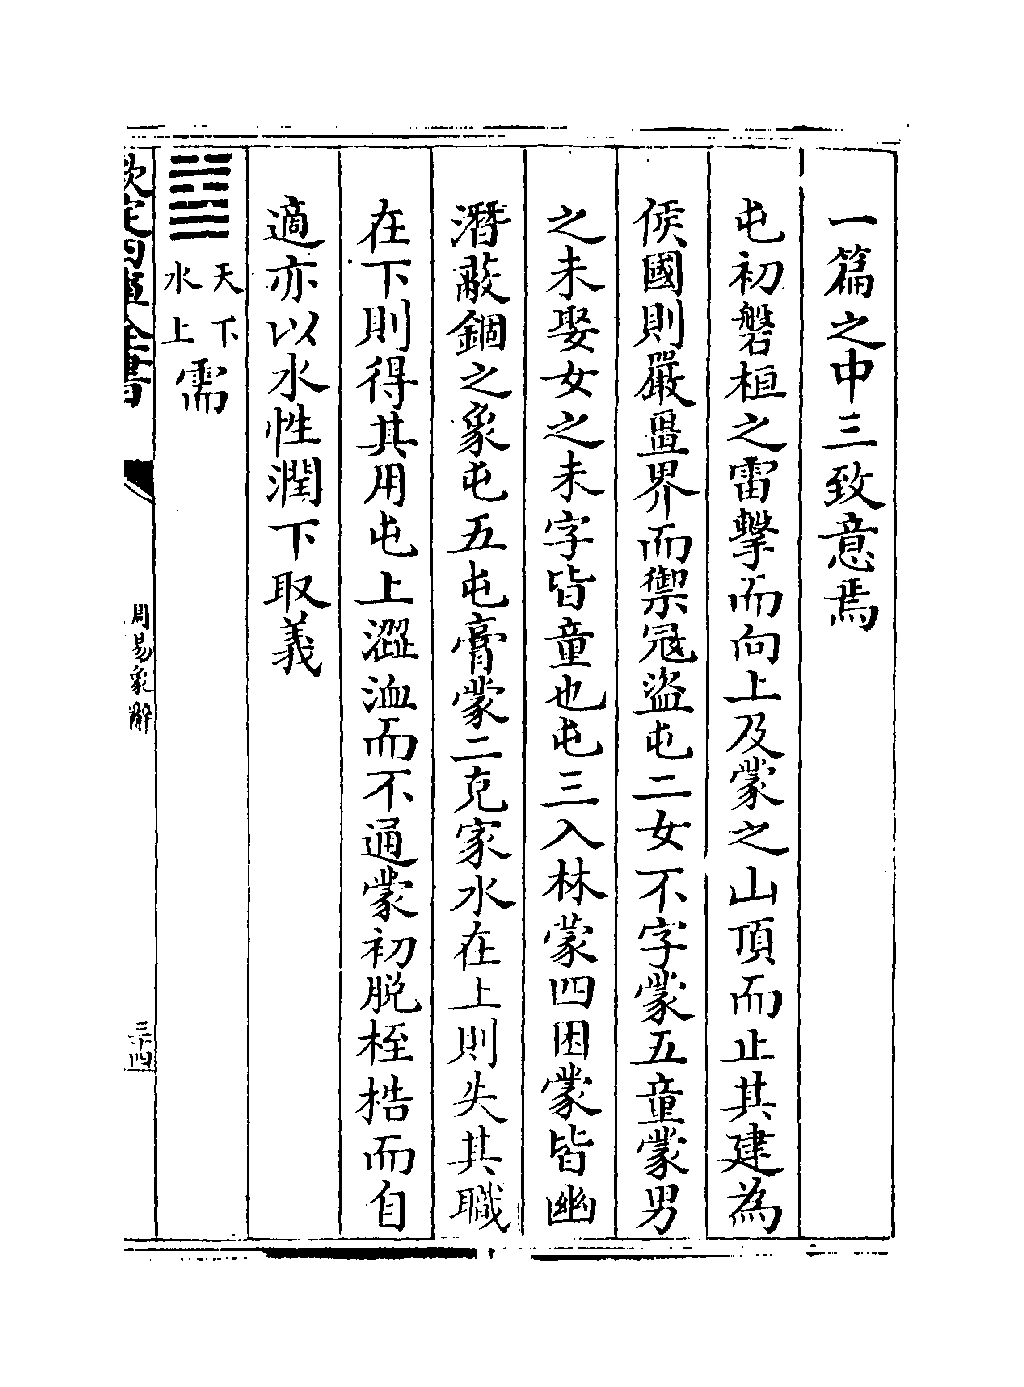 一篇之中三致意焉
屯初磐桓之雷擊而向上及蒙之山頂而止其建為
侯國則嚴畺界而禦冦盜屯二女不字蒙五童蒙男
之未娶女之未字皆童也屯三入林蒙四困蒙皆幽
潛蔽錮之象屯五屯膏蒙二克家水在上則失其職
在下則得其用屯上澀洫而不通蒙初脱桎梏而自
適亦以水性潤下取義
䷄
天下
水上
需
欽定四庫全書
周易象辭
三十四